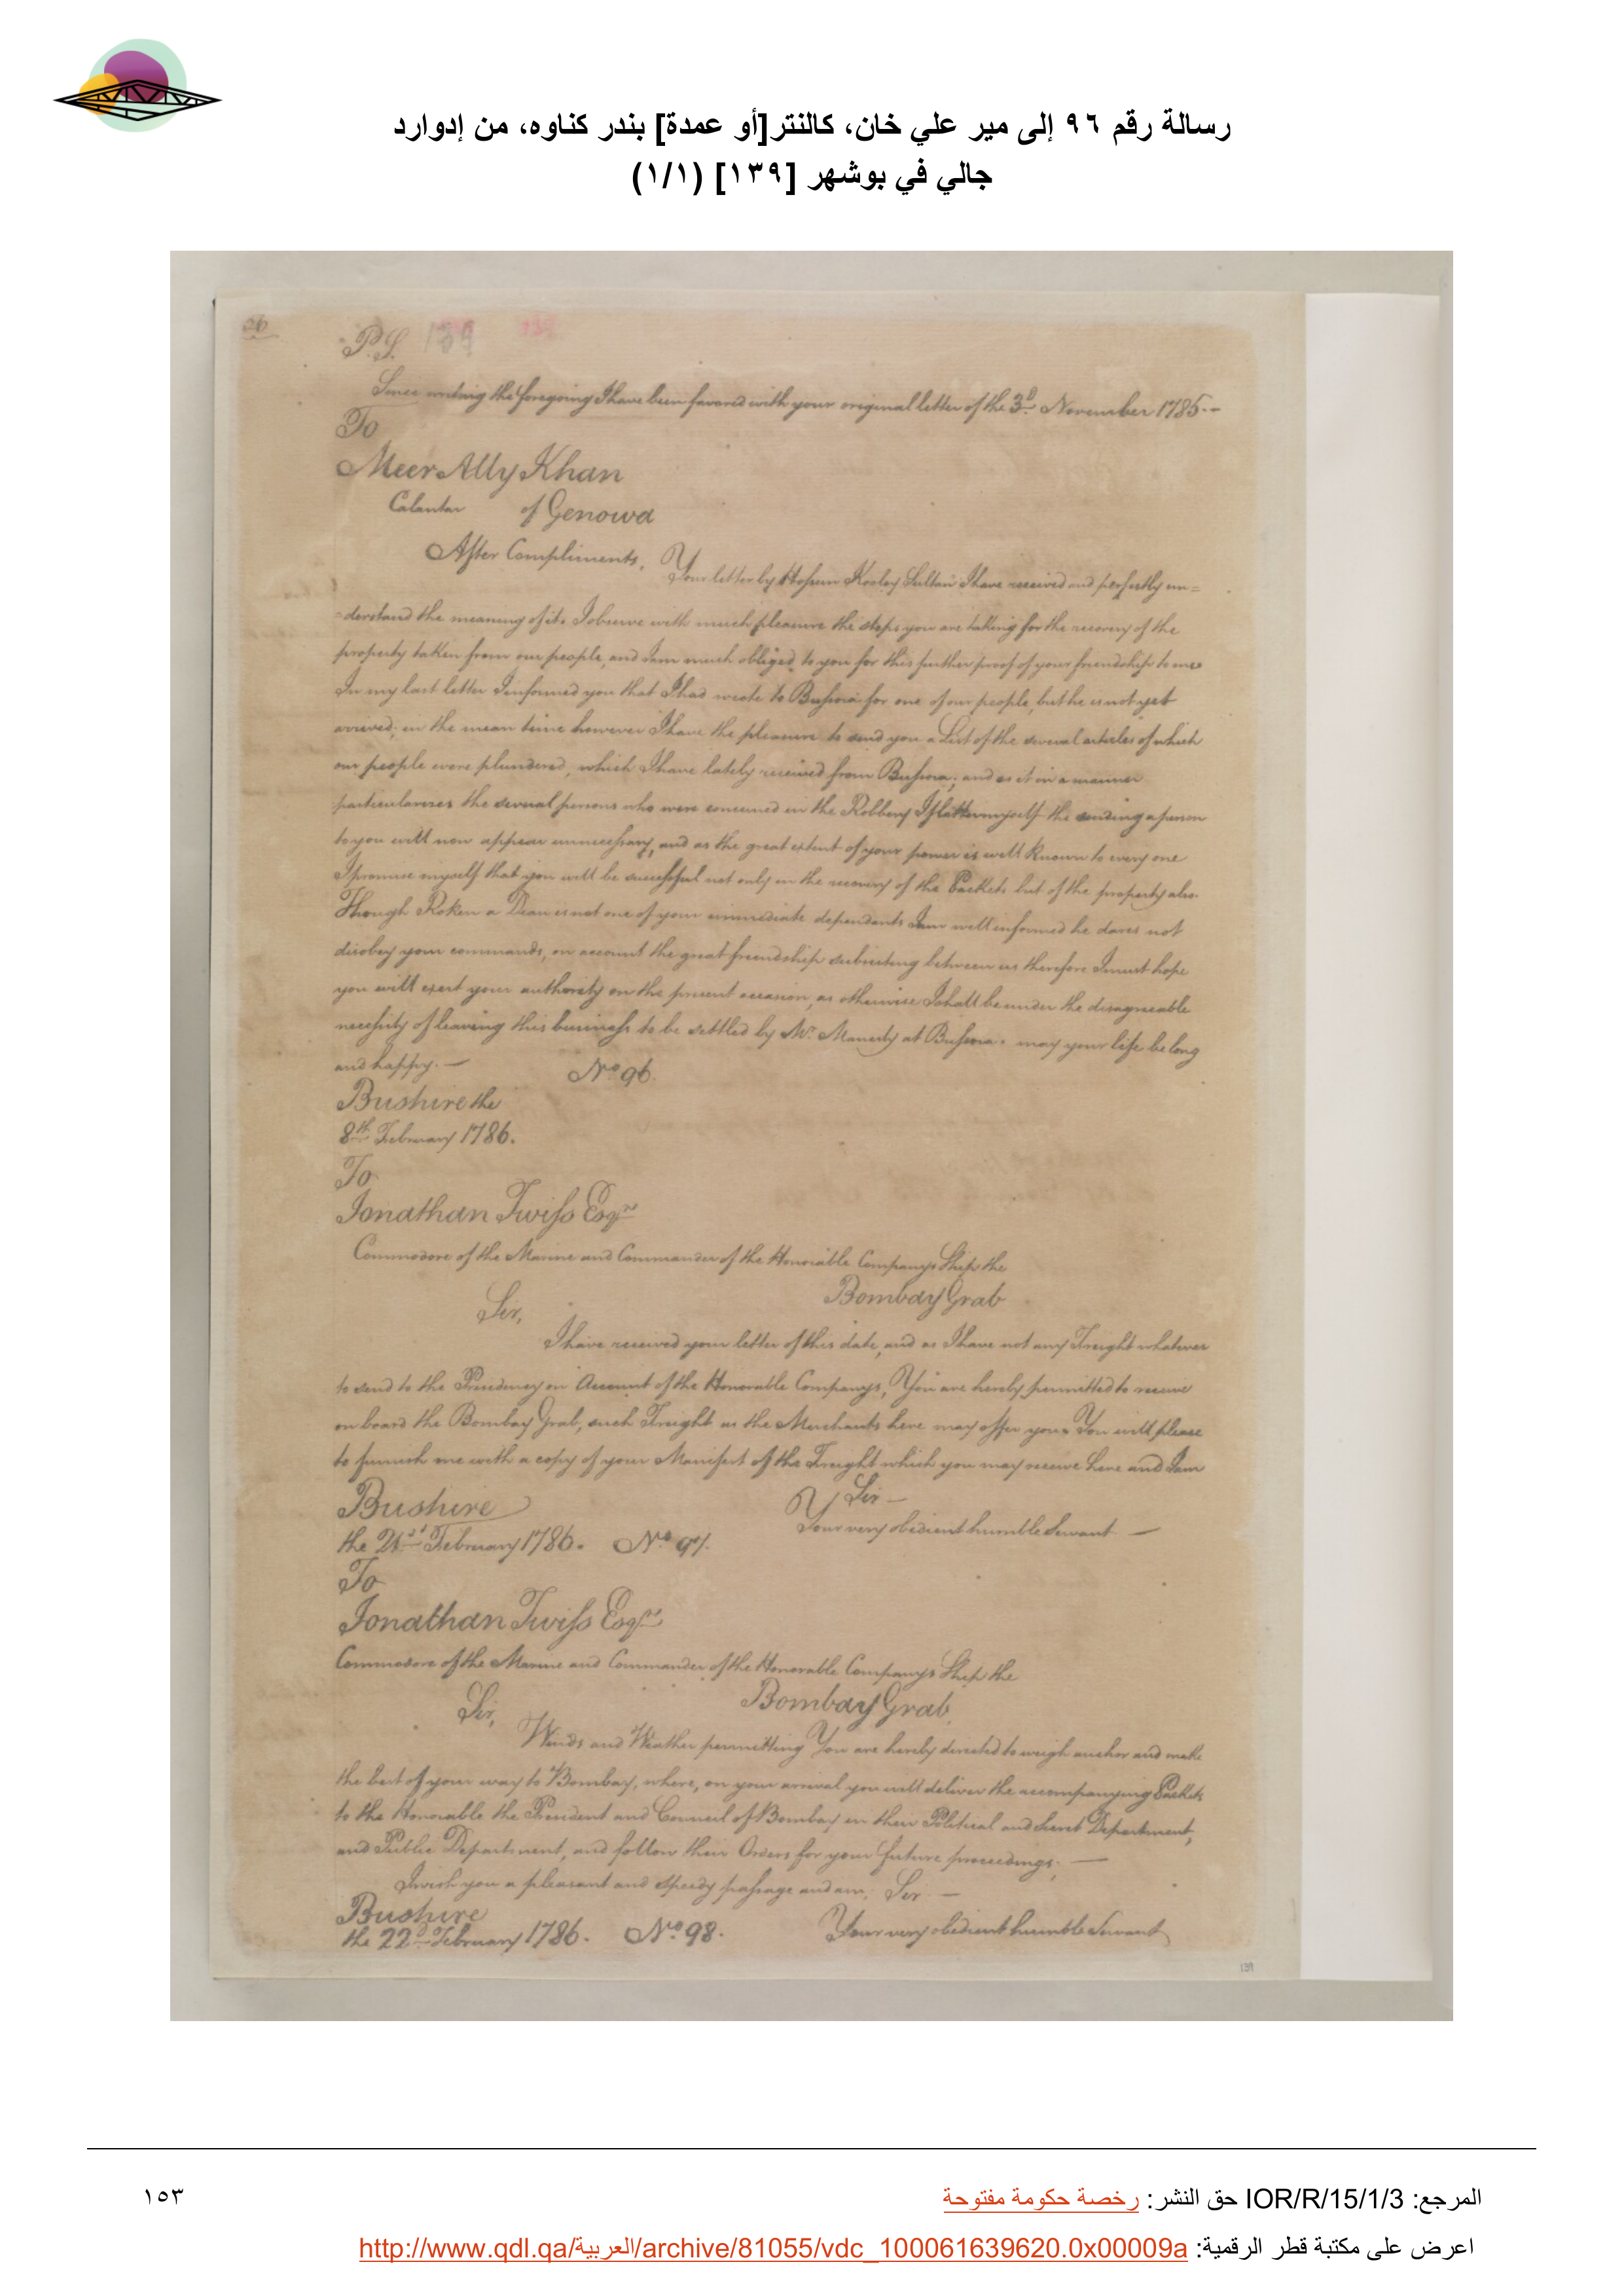 رسالة رقم ٩٦ إلى مير علي خان، كالنتر[أو عمدة] بندر كناوه، من إدوارد
جالي في بوشهر [١٣٩] (١/١)
26
P.S. 139 139
Since writing the foregoing I have been favored with your original letter of the 3d November 1785.-
To
Meer Ally Khan
Calantar of Genowa
After Compliments, Your letter by Hossein Kooley Sultan I have received and perfectly un=
=derstand the meaning of it. I observe with much pleasure the steps you are taking for the recovery of the
property taken from our people, and I am much obliged to you for this further proof of your friendship to me.
In my last letter I informed you that I had wrote to Bussora for one of our people, but he is not yet
arrived; in the mean time however I have the pleasure to send you a List of the several articles of which
our people were plundered, which I have lately received from Bussora; and as it in a manner
particularizes the several persons who were concerned in the Robbery I flatter myself the sending a person
to you will now appear unnecessary, and as the great extent of your power is well known to every one
I promise myself that you will be successful not only in the recovery of the Packets but of the property also.
Though Roken a Dean is not one of your immediate dependants I am well informed he dares not
disobey your commands, on account the great friendship subsisting between us therefore I must hope
you will exert your authority on the present occasion, as otherwise I shall be under the disagreeable
necessity of leaving this business to be settled by Mr. Manesty at Bussora. may your life be long
and happy. — No 96.
Bushire the
8th February 1786.
To
Jonathan Twiss Esqr.
Commodore of the Marine and Commander of the Honorable Companys Ship the
Bombay Grab
Sir,
I have received your letter of this date, and as I have not any Freight whatever
to send to the Presidency on Account of the Honorable Companys, You are hereby permitted to receive
on board the Bombay Grab, such Freight as the Merchants here may offer you. You will please
to furnish me with a copy of your Manifest of the Freight which you may receive here and I am
Bushire Sir —
Your very obedient humble Servant —
the 21st February 1786. No 97.
To
Jonathan Twiss Esqr.
Commodore of the Marine and Commander of the Honorable Companys Ship the
Bombay Grab
Sir,
Winds and Weather permitting You are hereby directed to weigh anchor and make
the best of your way to Bombay, where, on your arrival you will deliver the accompanying Packets
to the Honorable the President and Council of Bombay in their Political and Secret Department,
and Public Department, and follow their Orders for your future proceedings. —
I wish you a pleasant and speedy passage and am, Sir —
Bushire
the 22d February 1786. No 98. Your very obedient humble Servant
139
المرجع: IOR/R/15/1/3 حق النشر: رخصة حكومة مفتوحة
١٥٣
اعرض على مكتبة قطر الرقمية: http://www.qdl.qa/العربية/archive/81055/vdc_100061639620.0x00009a